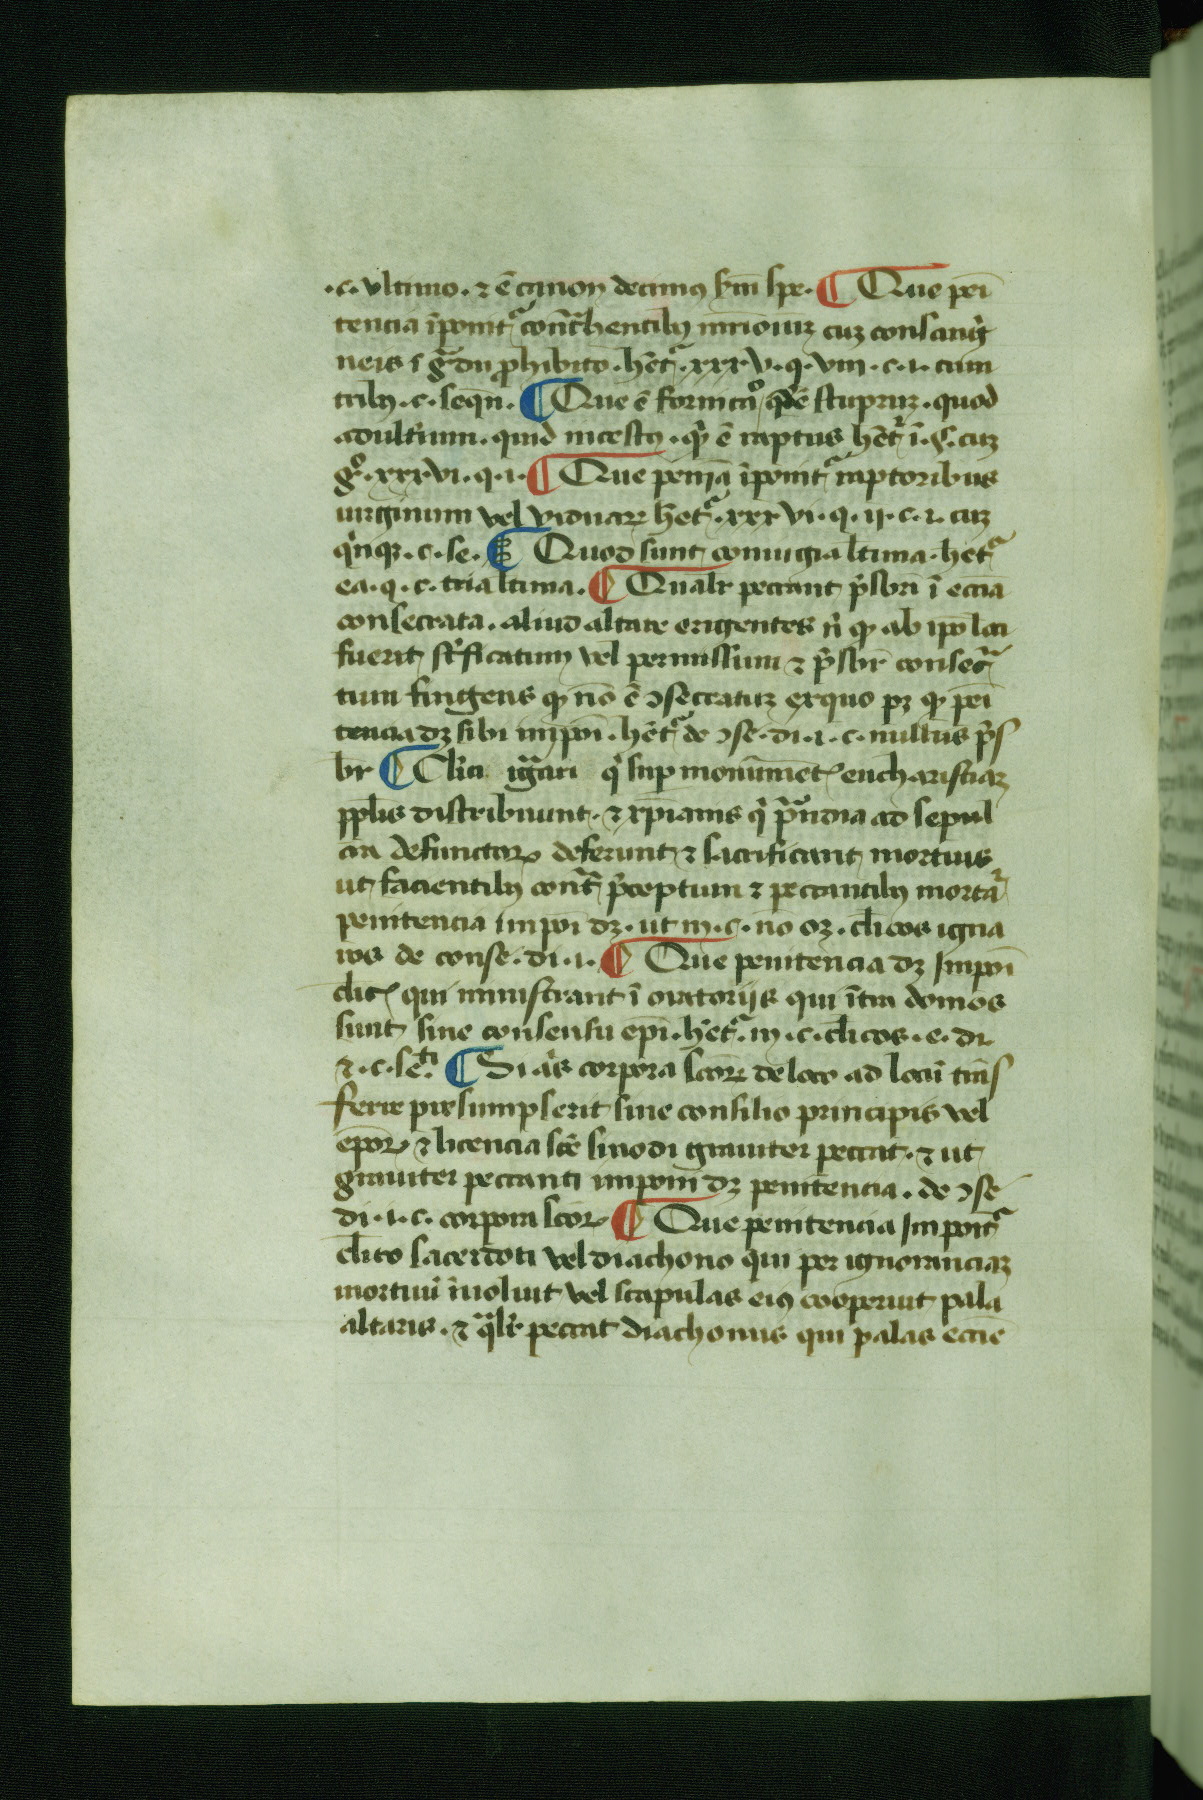 .c. vltimo. ⁊ ē canon decimꝯ ẜm spe. ¶ Que peni
tencia īponit᷑ cont̃hentibꝫ mr̄ioniuꝫ cuꝫ consangͥ
neis ī gͣdu ꝓhibito. hēt᷑. xxxv. q. viii. c. i. cum
tribꝫ. c. seqn̄. ¶ Que ē fornicaͦ qͥd ē stupruꝫ. quod
adult̓ium. quid incestꝯ. qͥ ē raptus hēt᷑ ī. §. cuꝫ
gͦ. xxxvi. q. i. ¶ Que penīa īponit᷑ raptoribus
uirginum vel viduaꝝ het᷑. xxxvi. q. ii. c. i. cuꝫ
qͥnqꝫ. c. se. ¶ Quod sunt coniugia ltima. het᷑
ea. q. c. tria ltima. ¶ Qualr̄ peccant p̄sbri ī eccīa
consecrata. aliud altare erigentes n̄ ꝙ ab ip̄o loci
fuerit sc̄ificatum vel permissum ⁊ p̄sbr̄ consecͣ
tum fingens ꝙ nō ē ↄsecratuꝫ exquo pꝫ ꝙ peni
tencia dꝫ sibi impoī. hēt᷑ de ↄse. di. i. c. nullus p̄s
br ¶ Cl̄ici igͣari qͥ suꝑ monumēt᷑ eucharistiaꝫ
pplīs distribuunt. ⁊ xp̄ianis qͥ pͣndia ad sepul
cra defunctoꝝ deferunt ⁊ sacrificant mortuis
ut facientibꝫ contͣ p̄ceptum ⁊ peccantibꝫ mortaͬ
penitencia impoī dꝫ. ut in. c. nō oꝫ. cl̄icos igna
ros de conse. di. i. ¶ Que penitencia dꝫ Impoī
clic᷑ qui ministrant ī oratorijs qui īt̄ra domos
sunt sine consensu epī. hēt᷑. in. c. cl̄icos. e. di.
⁊. c. seͭͥ. ¶ Si qͥs corpora sc̄oꝝ de loco ad locū tͣns
ferre presumpserit sine consilio principis vel
ep̄oꝝ ⁊ licencia sc̄e sinodi grauiter peccat. ⁊ ut
grauiter peccanti imponi dꝫ penitencia. de ↄse
di. i. c. corpora sc̄oꝝ ¶ Que penitencia Imponit᷑
cl̄ico sacerdoti vel diachono qui per ignoranciaꝫ
mortuū īuoluit vel scapulas eiꝯ cooperuit pala
altaris. ⁊ qͣlr̄ peccat diachonus qui palas eccīe